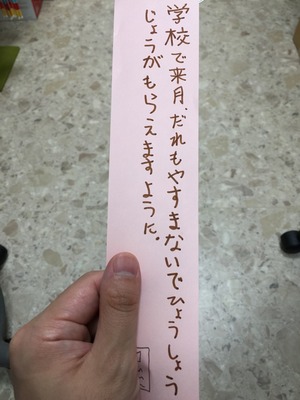 学校で来月、だれもやすまないでひょうしょう
じょうがもらえますように。